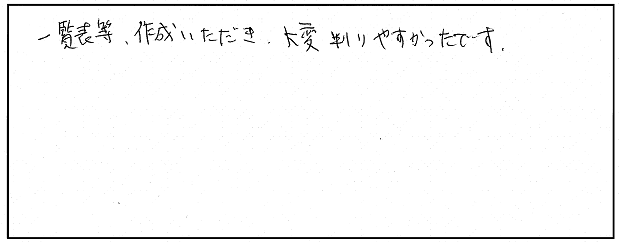 一覧表等、作成いただき、大変判りやすかったです。